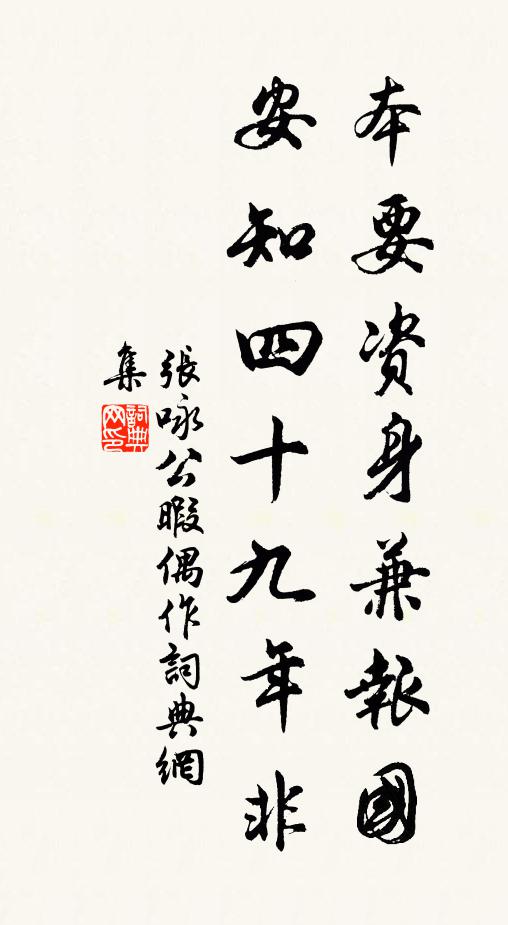 本要資身兼報國
安知四十九年非
張咏公暇偶作詞典網
集
詞典
网印